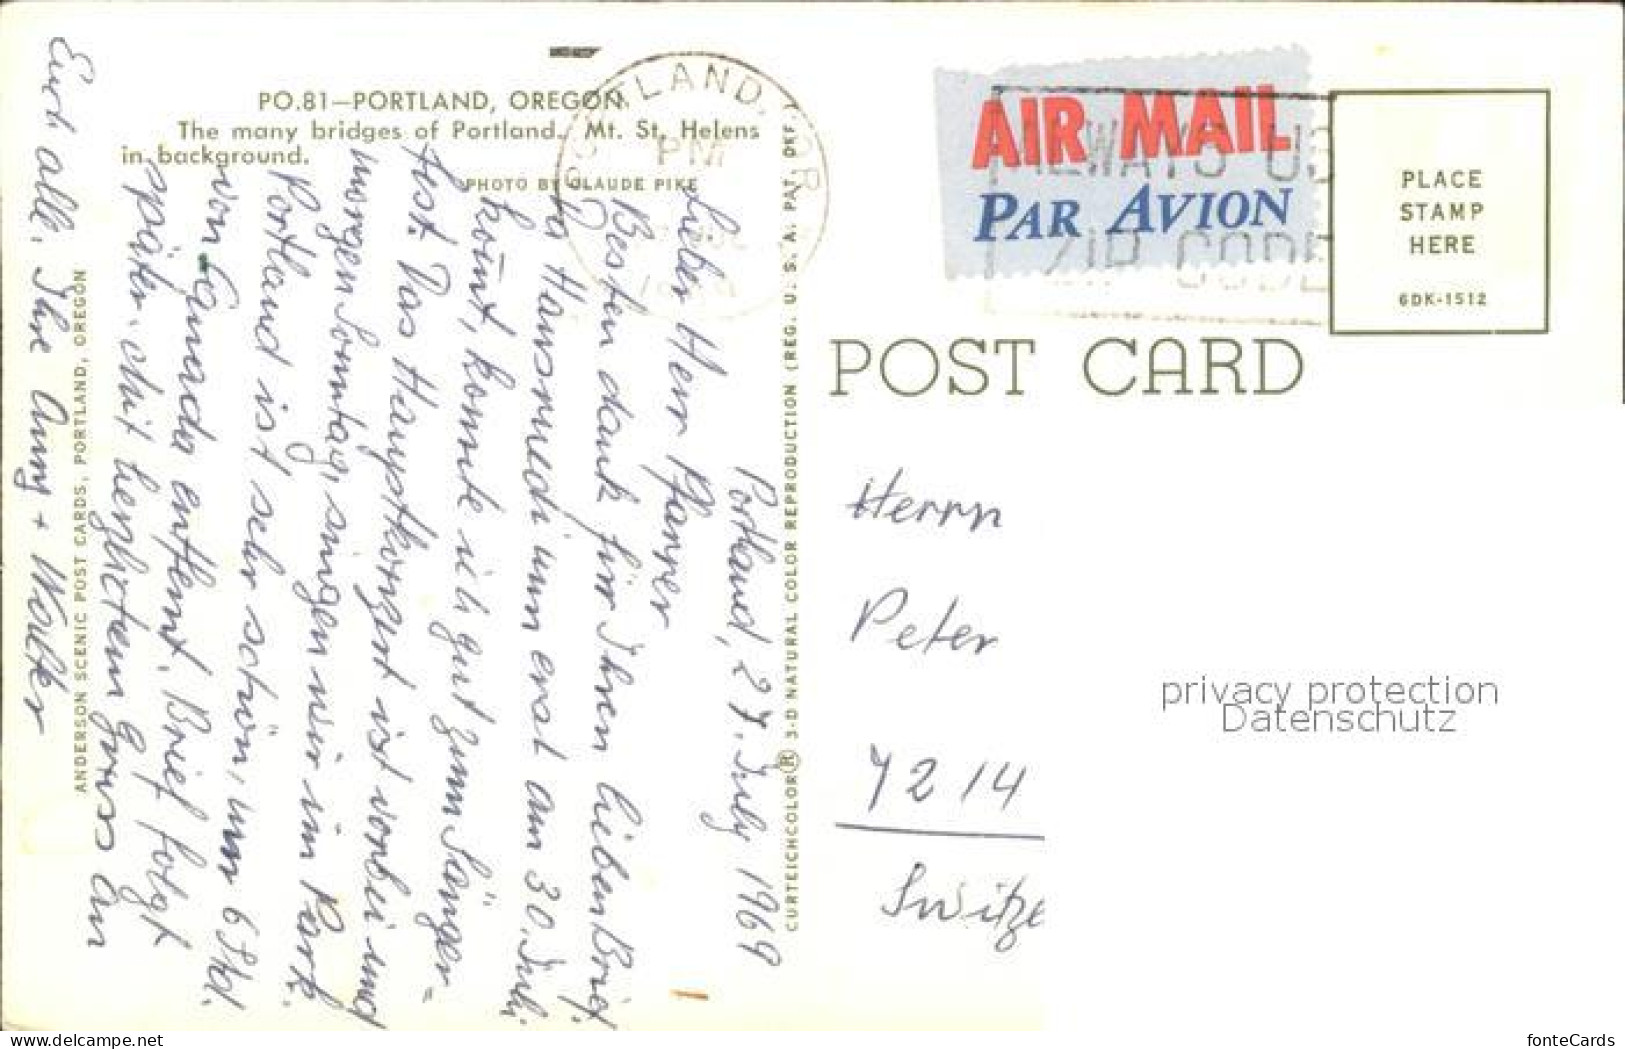 PO.81—PORTLAND, OREGON
The many bridges of Portland. Mt. St. Helens
in background.
PHOTO BY CLAUDE PIKE
Portland, 27. July 1969
Lieber Herr Pfarrer
Besten dank für Ihren lieben Brief.
Da Hansruedi um erst am 30. Juli
komt, konnte ich gut zum Sänger=
fest. Das Hauptkonzert ist vorbei und
morgen Sonntag, singen wir im Park.
Portland ist sehr schön, nur 6 Std.
von Canada entfernt. Brief folgt
später. Mit herzlichem Gruss an
Euch alle, Ihre Anny + Walter
ANDERSON SCENIC POST CARDS, PORTLAND, OREGON
CURTEICHCOLOR® 3-D NATURAL COLOR REPRODUCTION (REG. U. S. A. PAT. OFF.
PORTLAND, OR
PM
1969
AIR MAIL
PAR AVION
ALWAYS US
ZIP CODE
PLACE
STAMP
HERE
6DK-1512
POST CARD
Herrn
Peter
7214
Switze
privacy protection
Datenschutz
www.delcampe.net
fonteCards